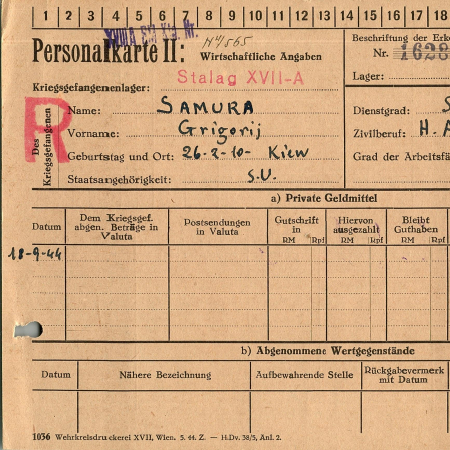 1 2 3 4 5 6 7 8 9 10 11 12 13 14 15 16 17 18
Personalkarte II: Wirtschaftliche Angaben
Beschriftung der Erke
Nr. 1628
Kriegsgefangenenlager: Stalag XVII-A
Lager:
R
Des Kriegsgefangenen
Name: SAMURA
Dienstgrad: S
Vorname: Grigorij
Zivilberuf: H.A
Geburtstag und Ort: 26-2-10- Kiew
Grad der Arbeitsfä
Staatsangehörigkeit: S.U.
a) Private Geldmittel
Datum
Dem Kriegsgef. abgen. Beträge in Valuta
Postsendungen in Valuta
Gutschrift in
RM Rpf
Hiervon ausgezahlt
RM Rpf
Bleibt Guthaben
RM Rpf
18-9-44
b) Abgenommene Wertgegenstände
Datum
Nähere Bezeichnung
Aufbewahrende Stelle
Rückgabevermerk mit Datum
1036 Wehrkreisdruckerei XVII, Wien. 5. 44. Z. — H.Dv. 38/5, Anl. 2.